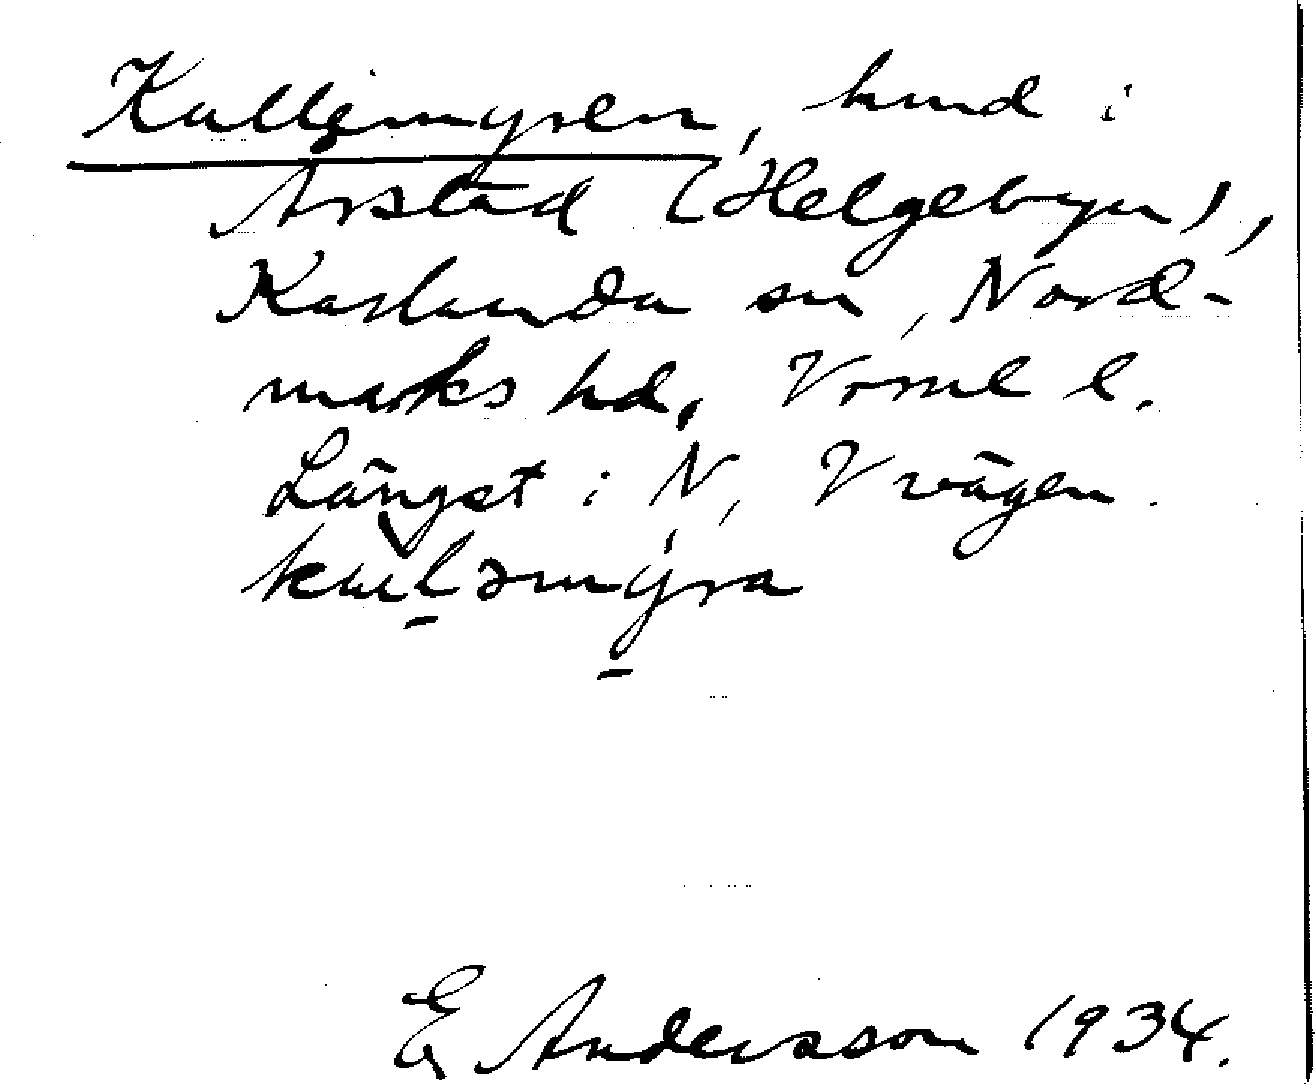 Kullemyren, lund i
Årstad (Helgebyn),
Karlanda sn, Nord-
marks hd, Vrml l.
Längst i N, V vägen.
E Andersson 1934.